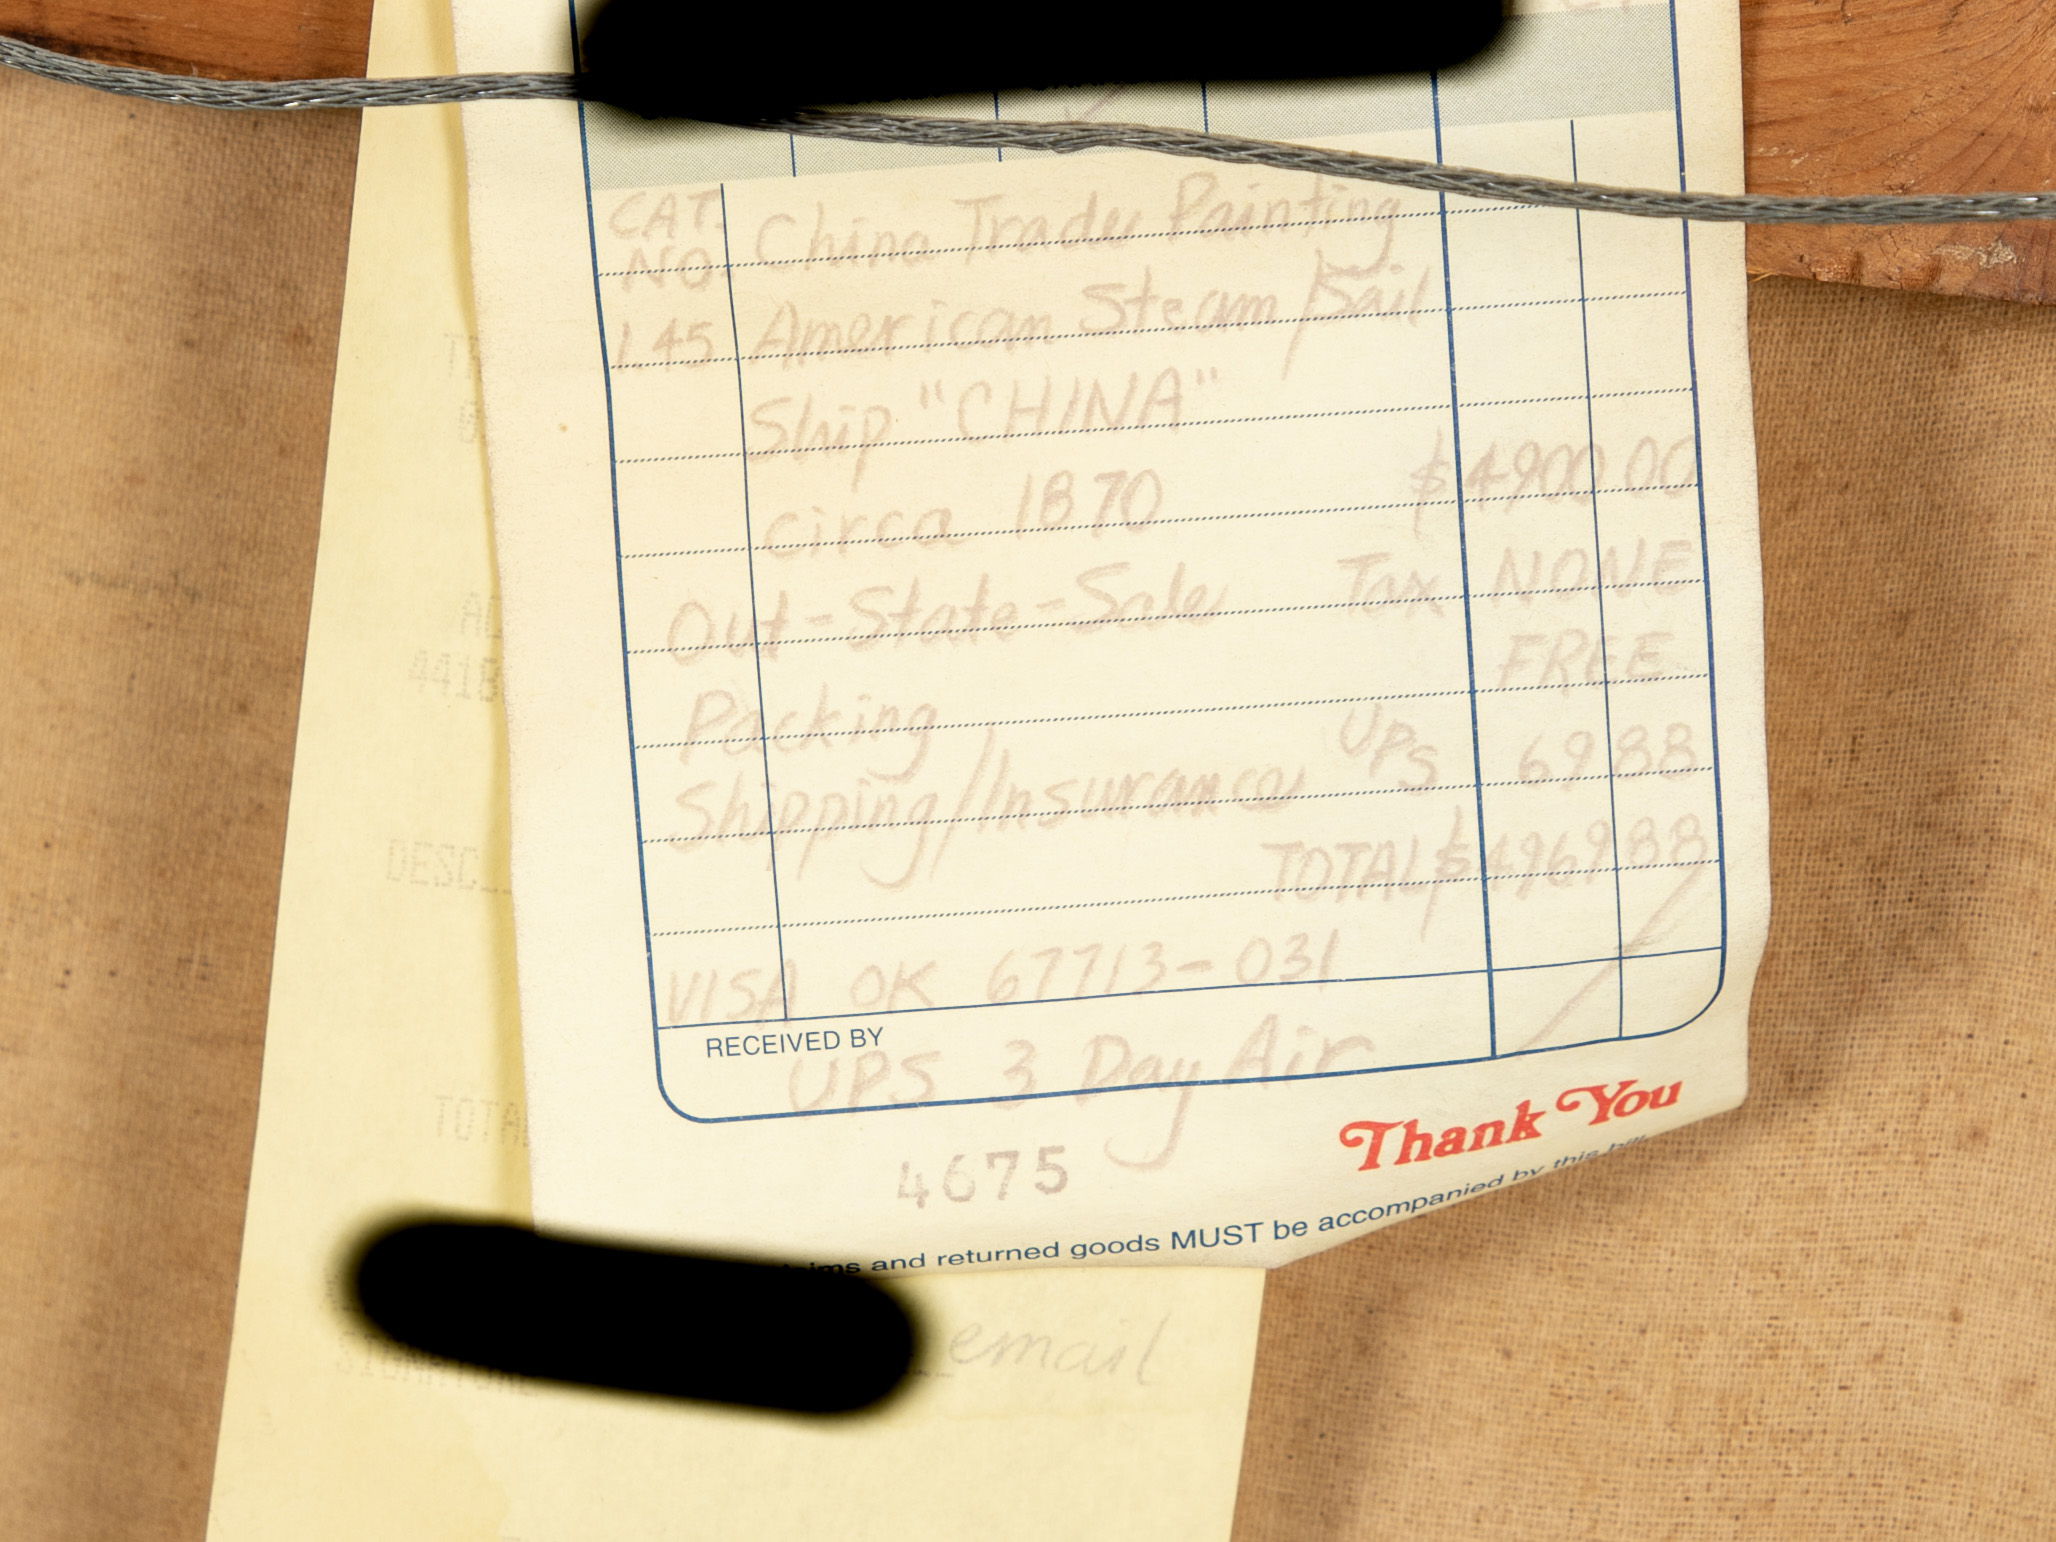 CAT. China Trade Painting
NO.
145 American Steam/Sail
Ship "CHINA"
circa 1870 $4900.00
Out-State-Sale Tax NONE
Packing FREE
Shipping/Insurance UPS 69 88
TOTAL $4969 88
VISA OK 67713-031
RECEIVED BY
UPS 3 Day Air
Thank You
4675
and returned goods MUST be accompanied by this bill
email
DESC
TOTA
SIGNATURE